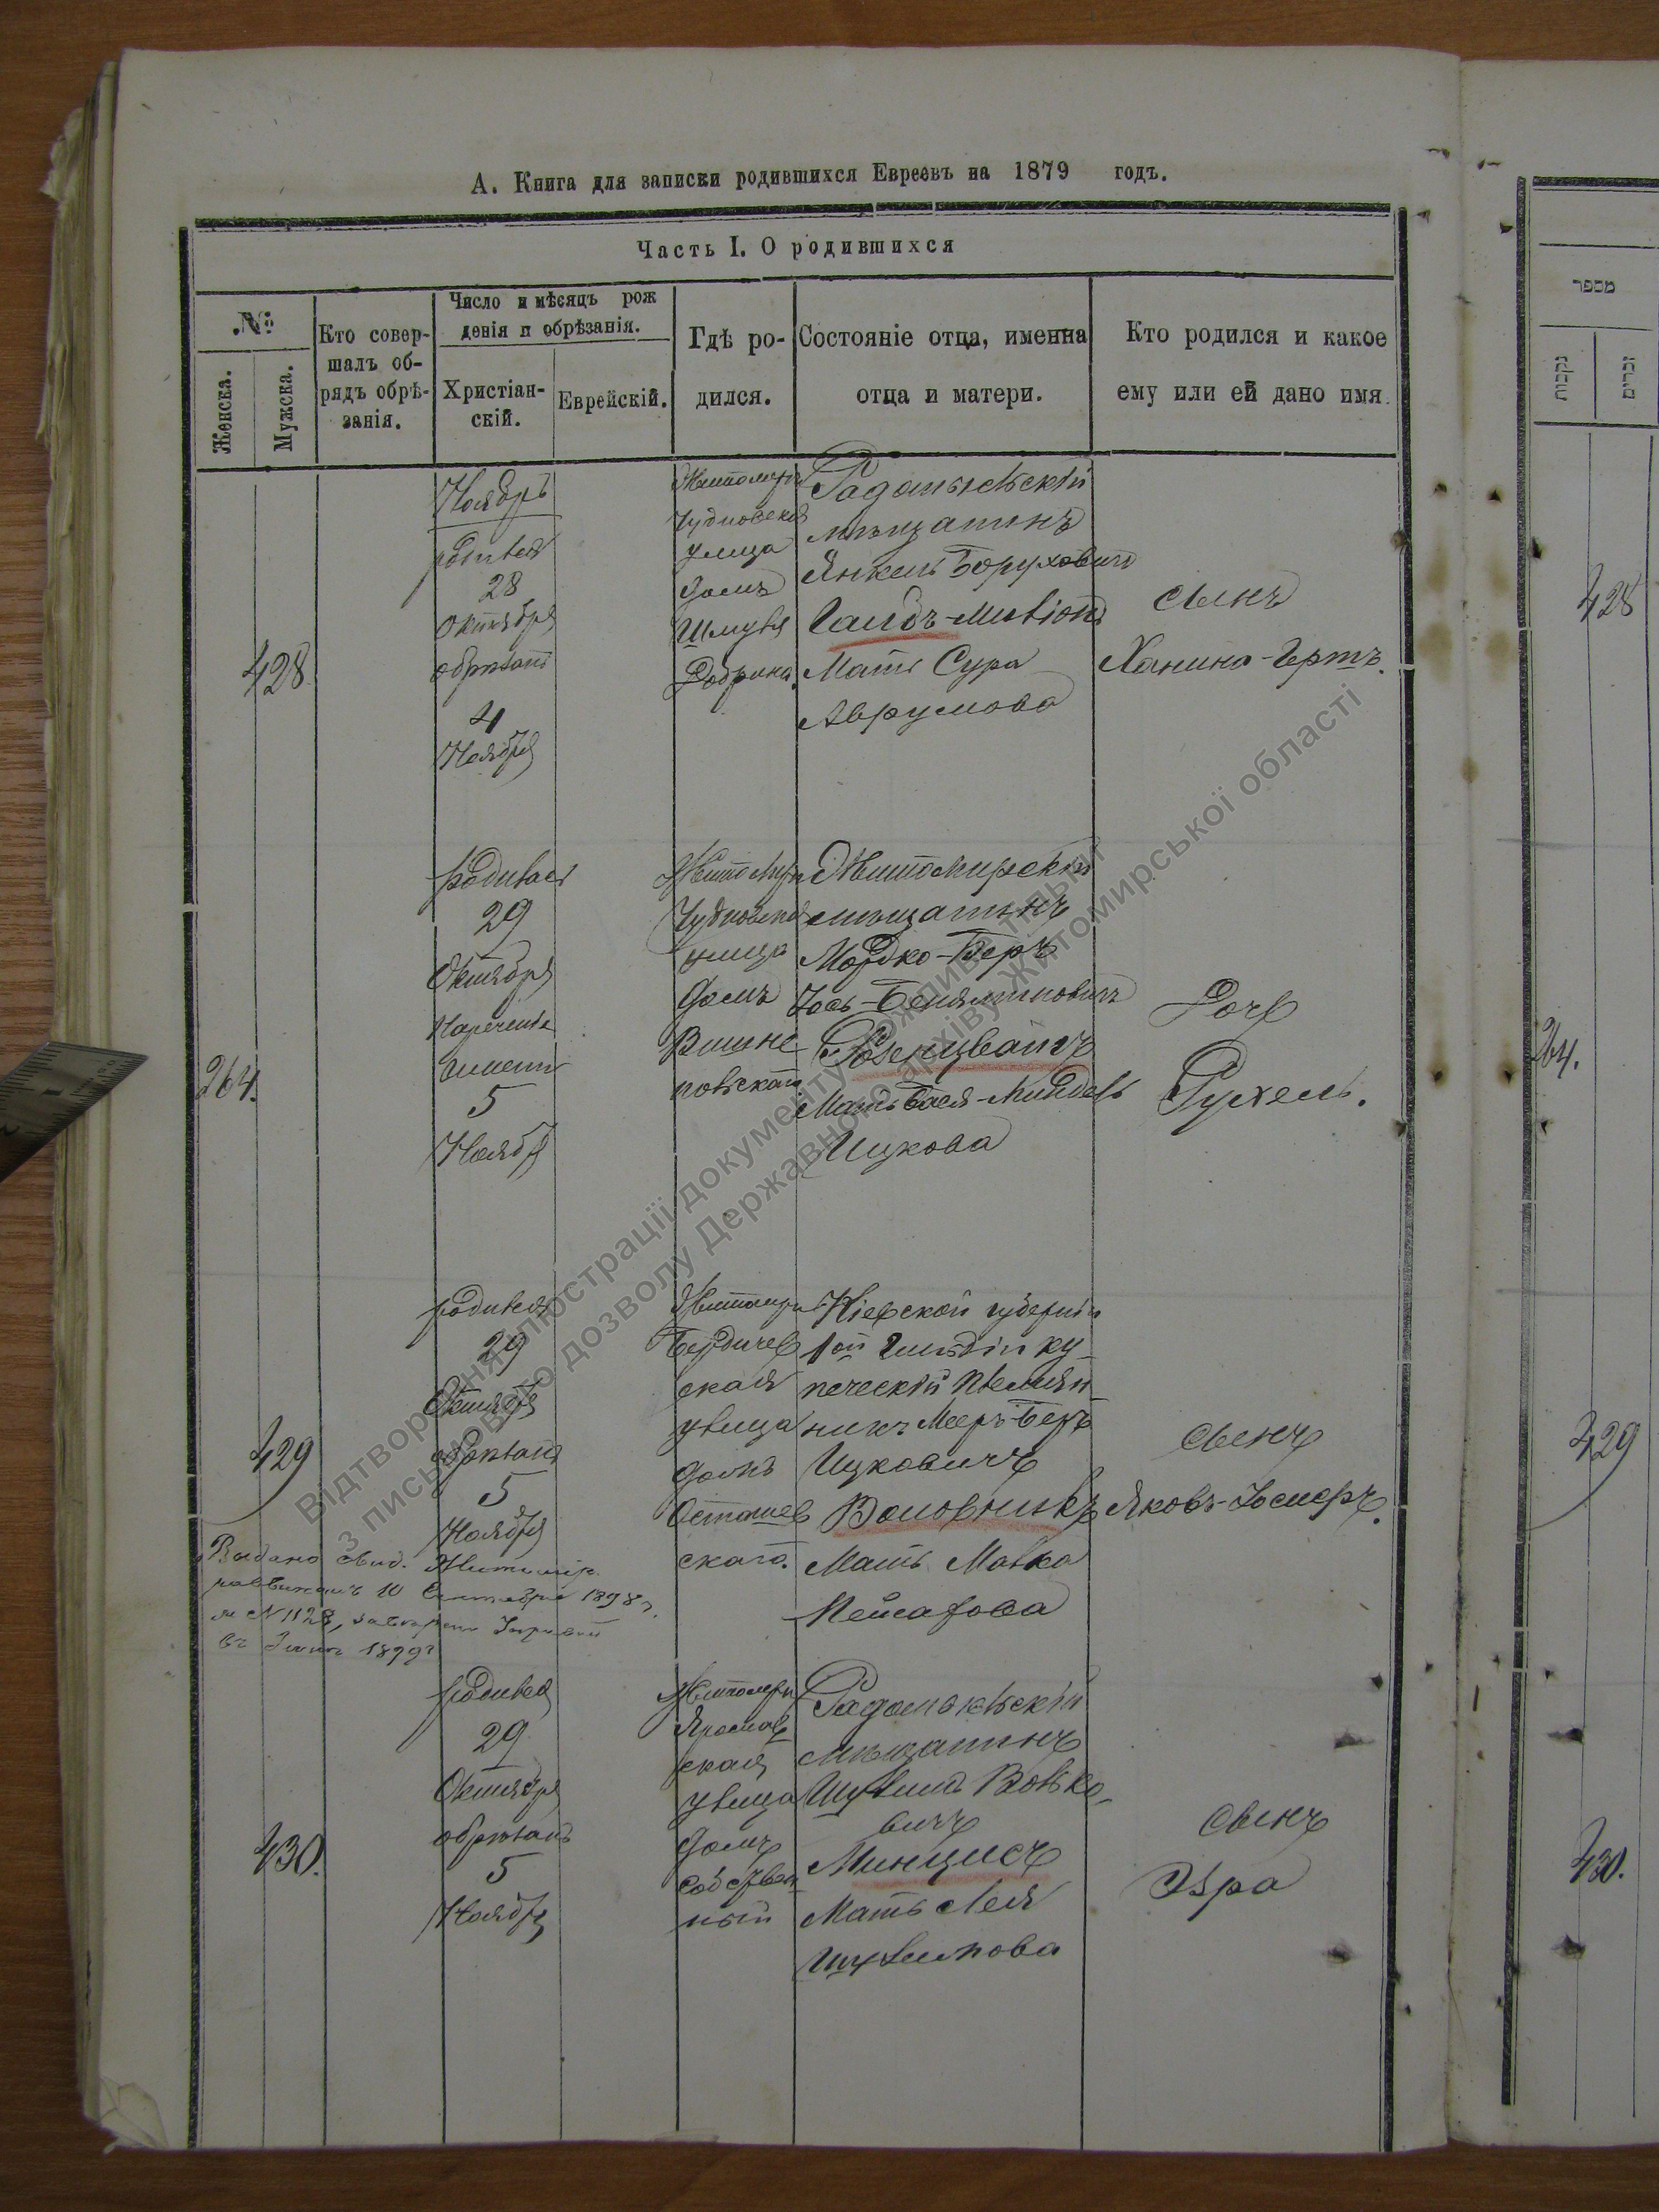 А. Книга для записки родившихся Евреевъ на 1879 годъ.
Часть I. О родившихся
№
Женска.
Мужска.
Кто совер-
шалъ об-
рядъ обрѣ-
занія.
Число и мѣсяцъ рож
денія и обрѣзанія.
Христіан-
скій.
Еврейскій.
Гдѣ ро-
дился.
Состояніе отца, именна
отца и матери.
Кто родился и какое
ему или ей дано имя.
428
Ноябрь
родился
28
Октября
обрѣзанъ
4
Ноября
Житомиръ
Чудновская
улица
домъ
Шмуля
Радомысльскій
мѣщанинъ
Янкель Борухович
Гальдъ-
Мать Сура
Аврумова
Сынъ
Ханина-Герть.
264.
родилась
29
Октября
Наречена
имени
5
Ноября
Житомиръ
Чудновская
улица
домъ
Житомирскій
мѣщанинъ
Мордко-Беръ
Іось-Беняминовичъ
Розенцвайгъ
Мать Бася-Миндель
Ицкова
Дочь
Рухель.
429
родился
29
Октября
обрѣзанъ
5
Ноября
Житомиръ
Бердичев
ская
улица
домъ
скаго.
Кіевской губерніи
1ой гильдіи ку-
печескій племян-
никъ Мееръ-Беръ
Ицковичъ
Воловникъ
Мать Малка
Сынъ
Яковъ-Іосиеръ.
Выдано свид. Житомир.
раввиномъ 10 Сентября 1898 г.
за № 1128,
въ 1899 г
430.
родился
29
Октября
обрѣзанъ
5
Ноября
Житомиръ
ская
улица
домъ
собствен
ный
Радомысльскій
мѣщанинъ
Шулимъ Волько-
вичъ
Минцисъ
Мать Лея
Шулимова
Сынъ
Эзра
מספר
נקבות
זכרים
428
264.
429
430.
Відтворення ілюстрації документу
з письмового дозволу Державного архіву Житомирської області